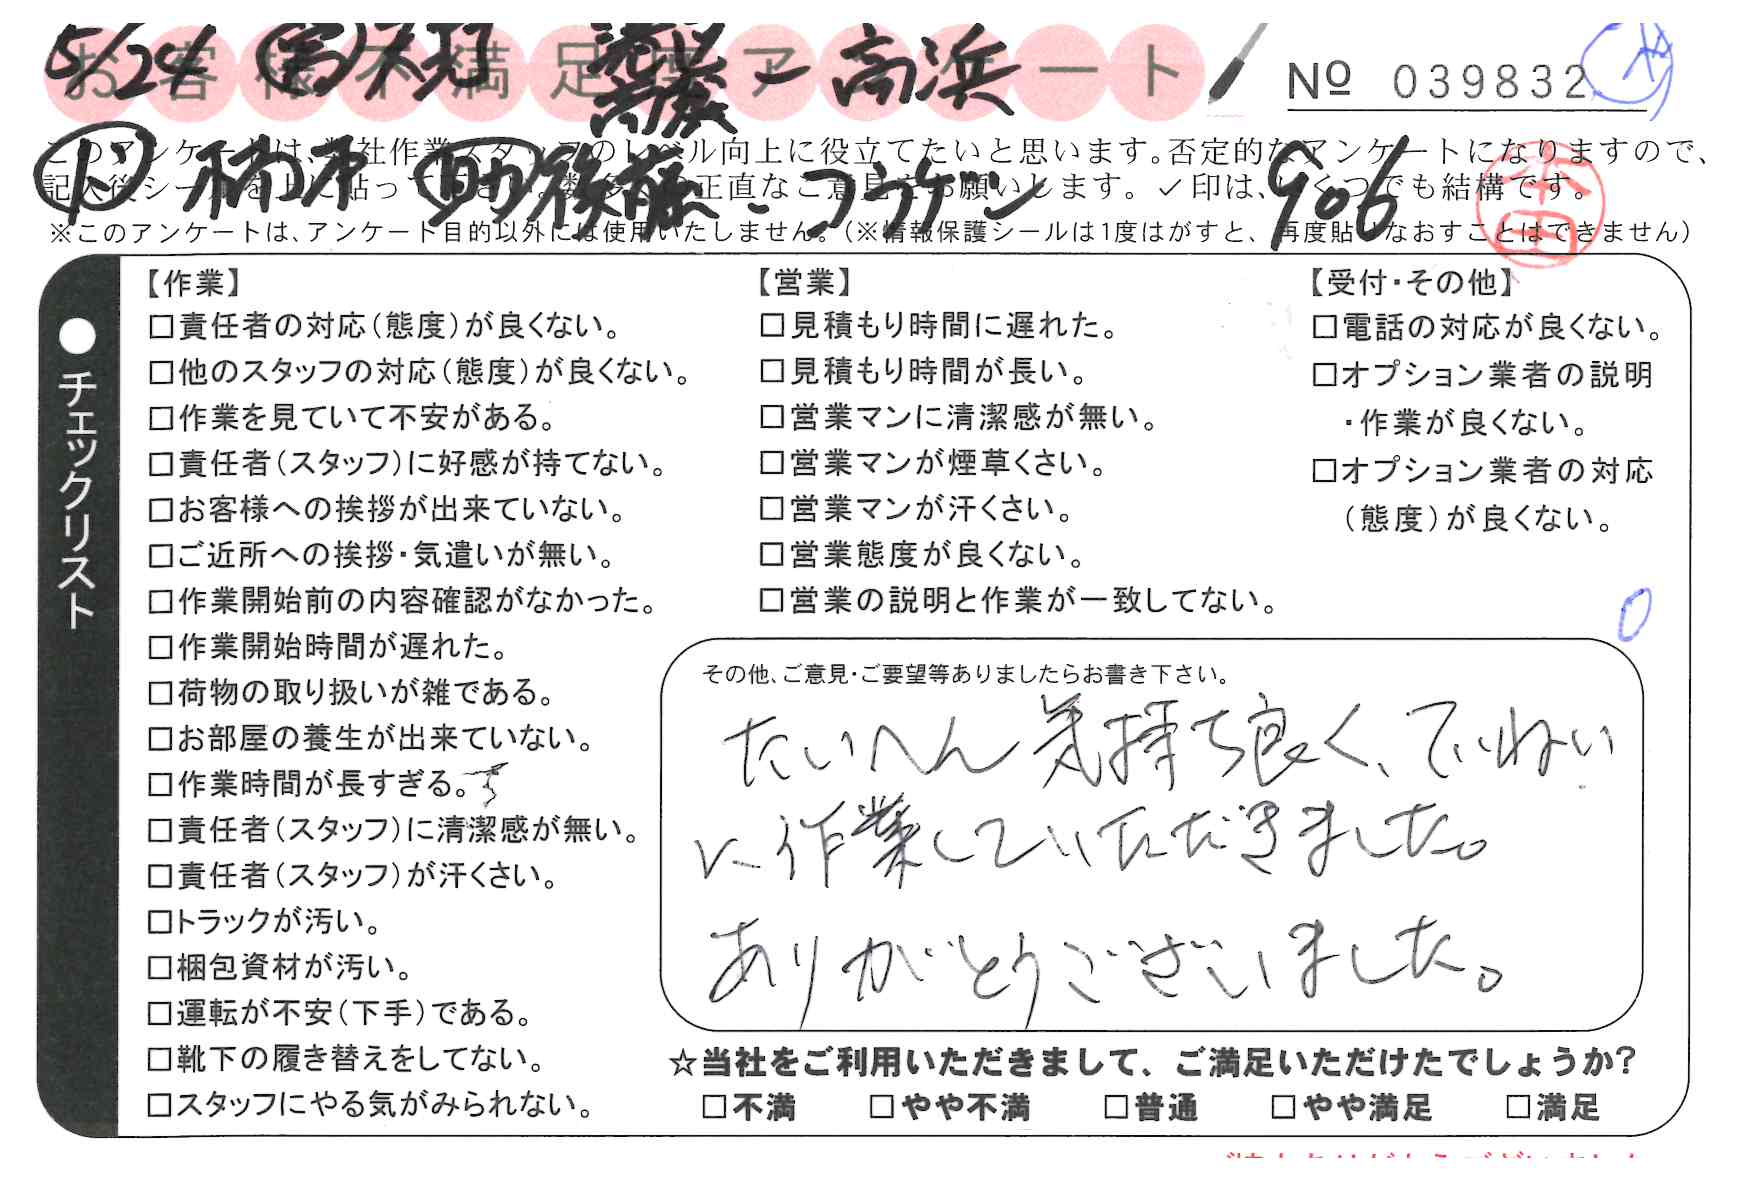 お客様不満足度アンケート
5/24
高浜
№ 039832
このアンケートは、弊社作業スタッフのレベル向上に役立てたいと思います。否定的なアンケートになりますので、
記入後シールを上に貼って下さい。数多くの正直なご意見をお願いします。✓印は、いくつでも結構です。
後藤 - コウゲン 906
本田
※このアンケートは、アンケート目的以外には使用いたしません。(※情報保護シールは1度はがすと、再度貼りなおすことはできません)
●チェックリスト
【作業】
□責任者の対応(態度)が良くない。
□他のスタッフの対応(態度)が良くない。
□作業を見ていて不安がある。
□責任者(スタッフ)に好感が持てない。
□お客様への挨拶が出来ていない。
□ご近所への挨拶・気遣いが無い。
□作業開始前の内容確認がなかった。
□作業開始時間が遅れた。
□荷物の取り扱いが雑である。
□お部屋の養生が出来ていない。
□作業時間が長すぎる。
□責任者(スタッフ)に清潔感が無い。
□責任者(スタッフ)が汗くさい。
□トラックが汚い。
□梱包資材が汚い。
□運転が不安(下手)である。
□靴下の履き替えをしてない。
□スタッフにやる気がみられない。
【営業】
□見積もり時間に遅れた。
□見積もり時間が長い。
□営業マンに清潔感が無い。
□営業マンが煙草くさい。
□営業マンが汗くさい。
□営業態度が良くない。
□営業の説明と作業が一致してない。
【受付・その他】
□電話の対応が良くない。
□オプション業者の説明
・作業が良くない。
□オプション業者の対応
(態度)が良くない。
0
その他、ご意見・ご要望等ありましたらお書き下さい。
たいへん気持ち良く、ていねい
に作業していただきました。
ありがとうございました。
☆当社をご利用いただきまして、ご満足いただけたでしょうか?
□不満 □やや不満 □普通 □やや満足 □満足